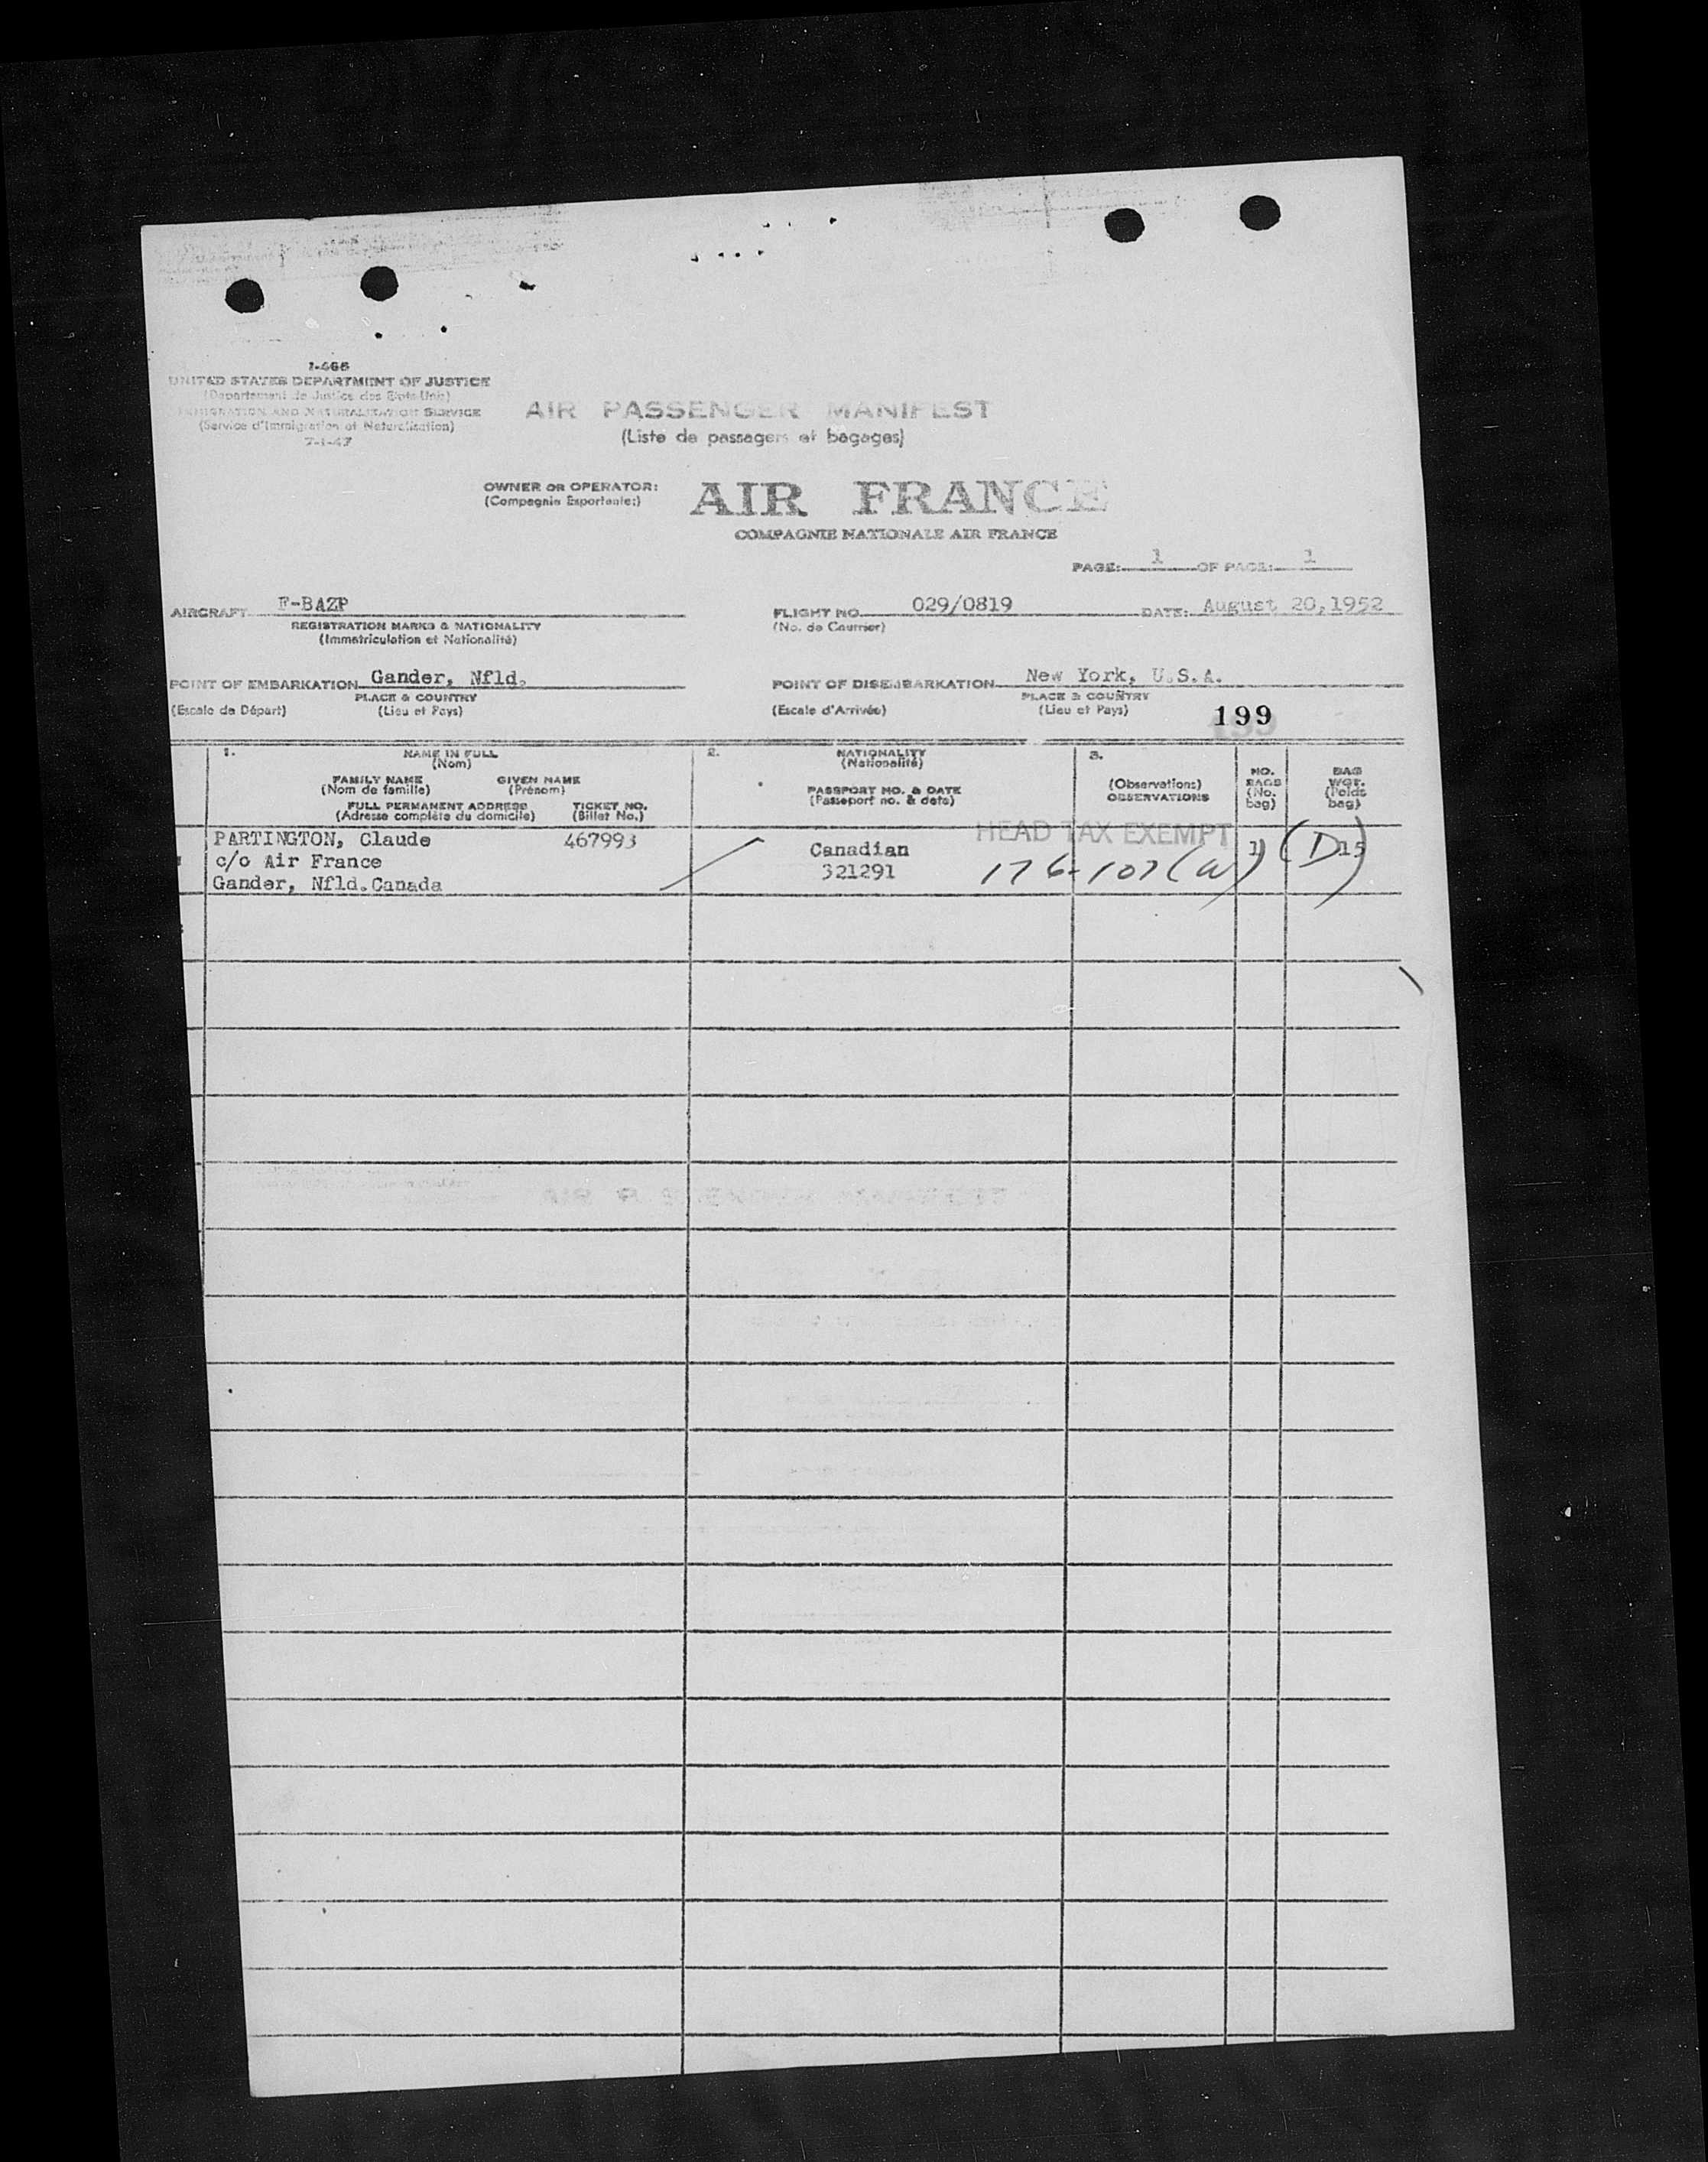 I-466
UNITED STATES DEPARTMENT OF JUSTICE
(Departement de Justice des Etats-Unis)
IMMIGRATION AND NATURALIZATION SERVICE
(Service d'Immigration et Naturalisation)
7-1-47
AIR PASSENGER MANIFEST
(Liste de passagers et bagages)
OWNER OR OPERATOR: AIR FRANCE
(Compagnie Exportante:)
COMPAGNIE NATIONALE AIR FRANCE
PAGE: 1 OF PAGE: 1
AIRCRAFT F-BAZP FLIGHT NO. 029/0819 DATE: August 20,1952
REGISTRATION MARKS & NATIONALITY (No. de Courrier)
(Immatriculation et Nationalité)
POINT OF EMBARKATION Gander, Nfld. POINT OF DISEMBARKATION New York, U.S.A.
PLACE & COUNTRY PLACE & COUNTRY
(Escale de Départ) (Lieu et Pays) (Escale d'Arrivée) (Lieu et Pays) 199
1. NAME IN FULL 2. NATIONALITY 3.
(Nom) (Nationalité)
FAMILY NAME GIVEN NAME (Observations) NO. BAG
(Nom de famille) (Prénom) PASSPORT NO. & DATE OBSERVATIONS BAGS WGT.
FULL PERMANENT ADDRESS TICKET NO. (Passeport no. & date) (No. (Poids
(Adresse complète du domicile) (Billet No.) bag) bag)
PARTINGTON, Claude 467993 Canadian HEAD TAX EXEMPT 1 15
c/o Air France 321291 176-107(W) (D)
Gander, Nfld.Canada